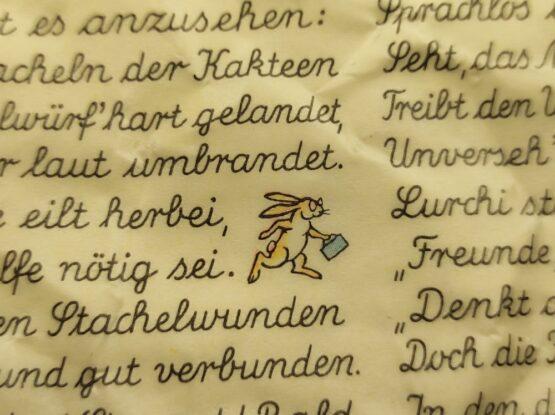 t es anzusehen:
acheln der Kakteen
lwürf'hart gelandet,
r laut umbrandet.
e eilt herbei,
lfe nötig sei.
en Stachelwunden
und gut verbunden.
Sprachlos
Seht, das
Treibt den
Unverseh
Lurchi st
„Freunde
„Denkt
Doch die
In den d